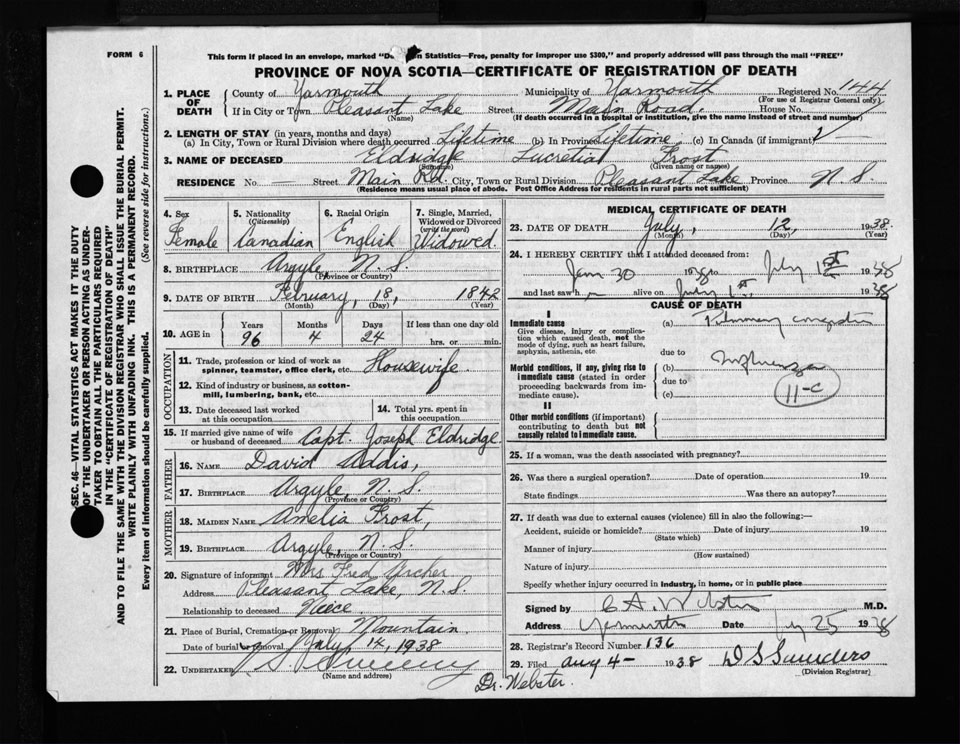 FORM 6
This form if placed in an envelope, marked "De n Statistics—Free, penalty for improper use $300," and properly addressed will pass through the mail "FREE"
PROVINCE OF NOVA SCOTIA—CERTIFICATE OF REGISTRATION OF DEATH
1. PLACE OF DEATH County of Yarmouth Municipality of Yarmouth Registered No. 144
(For use of Registrar General only)
If in City or Town Pleasant Lake Street Main Road. House No.
(Name) (If death occurred in a hospital or institution, give the name instead of street and number)
2. LENGTH OF STAY (in years, months and days)
(a) In City, Town or Rural Division where death occurred Lifetime (b) In Province Lifetime (c) In Canada (if immigrant)
3. NAME OF DECEASED Eldridge Lucretia Frost
(Surname) (Given name or names)
RESIDENCE No. — Street Main Rd. City, Town or Rural Division Pleasant Lake Province N.S.
(Residence means usual place of abode. Post Office Address for residents in rural parts not sufficient)
4. Sex Female
5. Nationality (Citizenship) Canadian
6. Racial Origin English
7. Single, Married, Widowed or Divorced (write the word) Widowed.
8. BIRTHPLACE Argyle, N.S.
(Province or Country)
9. DATE OF BIRTH February, 18, 1842
(Month) (Day) (Year)
10. AGE in Years Months Days If less than one day old
96 4 24 hrs. or min.
OCCUPATION
11. Trade, profession or kind of work as spinner, teamster, office clerk, etc. Housewife.
12. Kind of industry or business, as cotton-mill, lumbering, bank, etc.
13. Date deceased last worked at this occupation
14. Total yrs. spent in this occupation
15. If married give name of wife or husband of deceased Capt. Joseph Eldridge
FATHER
16. NAME David Addis,
17. BIRTHPLACE Argyle, N.S.
(Province or Country)
MOTHER
18. MAIDEN NAME Amelia Frost,
19. BIRTHPLACE Argyle, N.S.
(Province or Country)
20. Signature of informant Mrs Fred Archer
Address Pleasant Lake, N.S.
Relationship to deceased Neice
21. Place of Burial, Cremation or Removal Mountain
Date of burial or removal July 14, 1938
22. UNDERTAKER Sweeny
(Name and address)
MEDICAL CERTIFICATE OF DEATH
23. DATE OF DEATH July, 12, 1938
(Month) (Day) (Year)
24. I HEREBY CERTIFY that I attended deceased from:
Jan 30 1938 to July 1st 1938
and last saw h alive on July 1st. 1938
CAUSE OF DEATH
I
Immediate cause
Give disease, injury or complication which caused death, not the mode of dying, such as heart failure, asphyxia, asthenia, etc.
(a) Pulmonary congestion
due to
Morbid conditions, if any, giving rise to immediate cause (stated in order proceeding backwards from immediate cause).
(b) Influenza
due to
(c)
11-C
II
Other morbid conditions (if important) contributing to death but not causally related to immediate cause.
25. If a woman, was the death associated with pregnancy?
26. Was there a surgical operation? Date of operation 19
State findings Was there an autopsy?
27. If death was due to external causes (violence) fill in also the following:—
Accident, suicide or homicide? Date of injury 19
(State which)
Manner of injury
(How sustained)
Nature of injury
Specify whether injury occurred in industry, in home, or in public place
Signed by C A. Webster M.D.
Address Yarmouth Date July 25 1938
28. Registrar's Record Number 136
29. Filed Aug 4- 1938 D S Saunders
(Division Registrar)
Dr. Webster.
SEC. 46—VITAL STATISTICS ACT MAKES IT THE DUTY
OF THE UNDERTAKER OR PERSON ACTING AS UNDER-
TAKER TO OBTAIN ALL THE PARTICULARS REQUIRED
IN THE "CERTIFICATE OF REGISTRATION OF DEATH"
AND TO FILE THE SAME WITH THE DIVISION REGISTRAR WHO SHALL ISSUE THE BURIAL PERMIT.
WRITE PLAINLY WITH UNFADING INK. THIS IS A PERMANENT RECORD.
Every item of information should be carefully supplied. (See reverse side for instructions.)